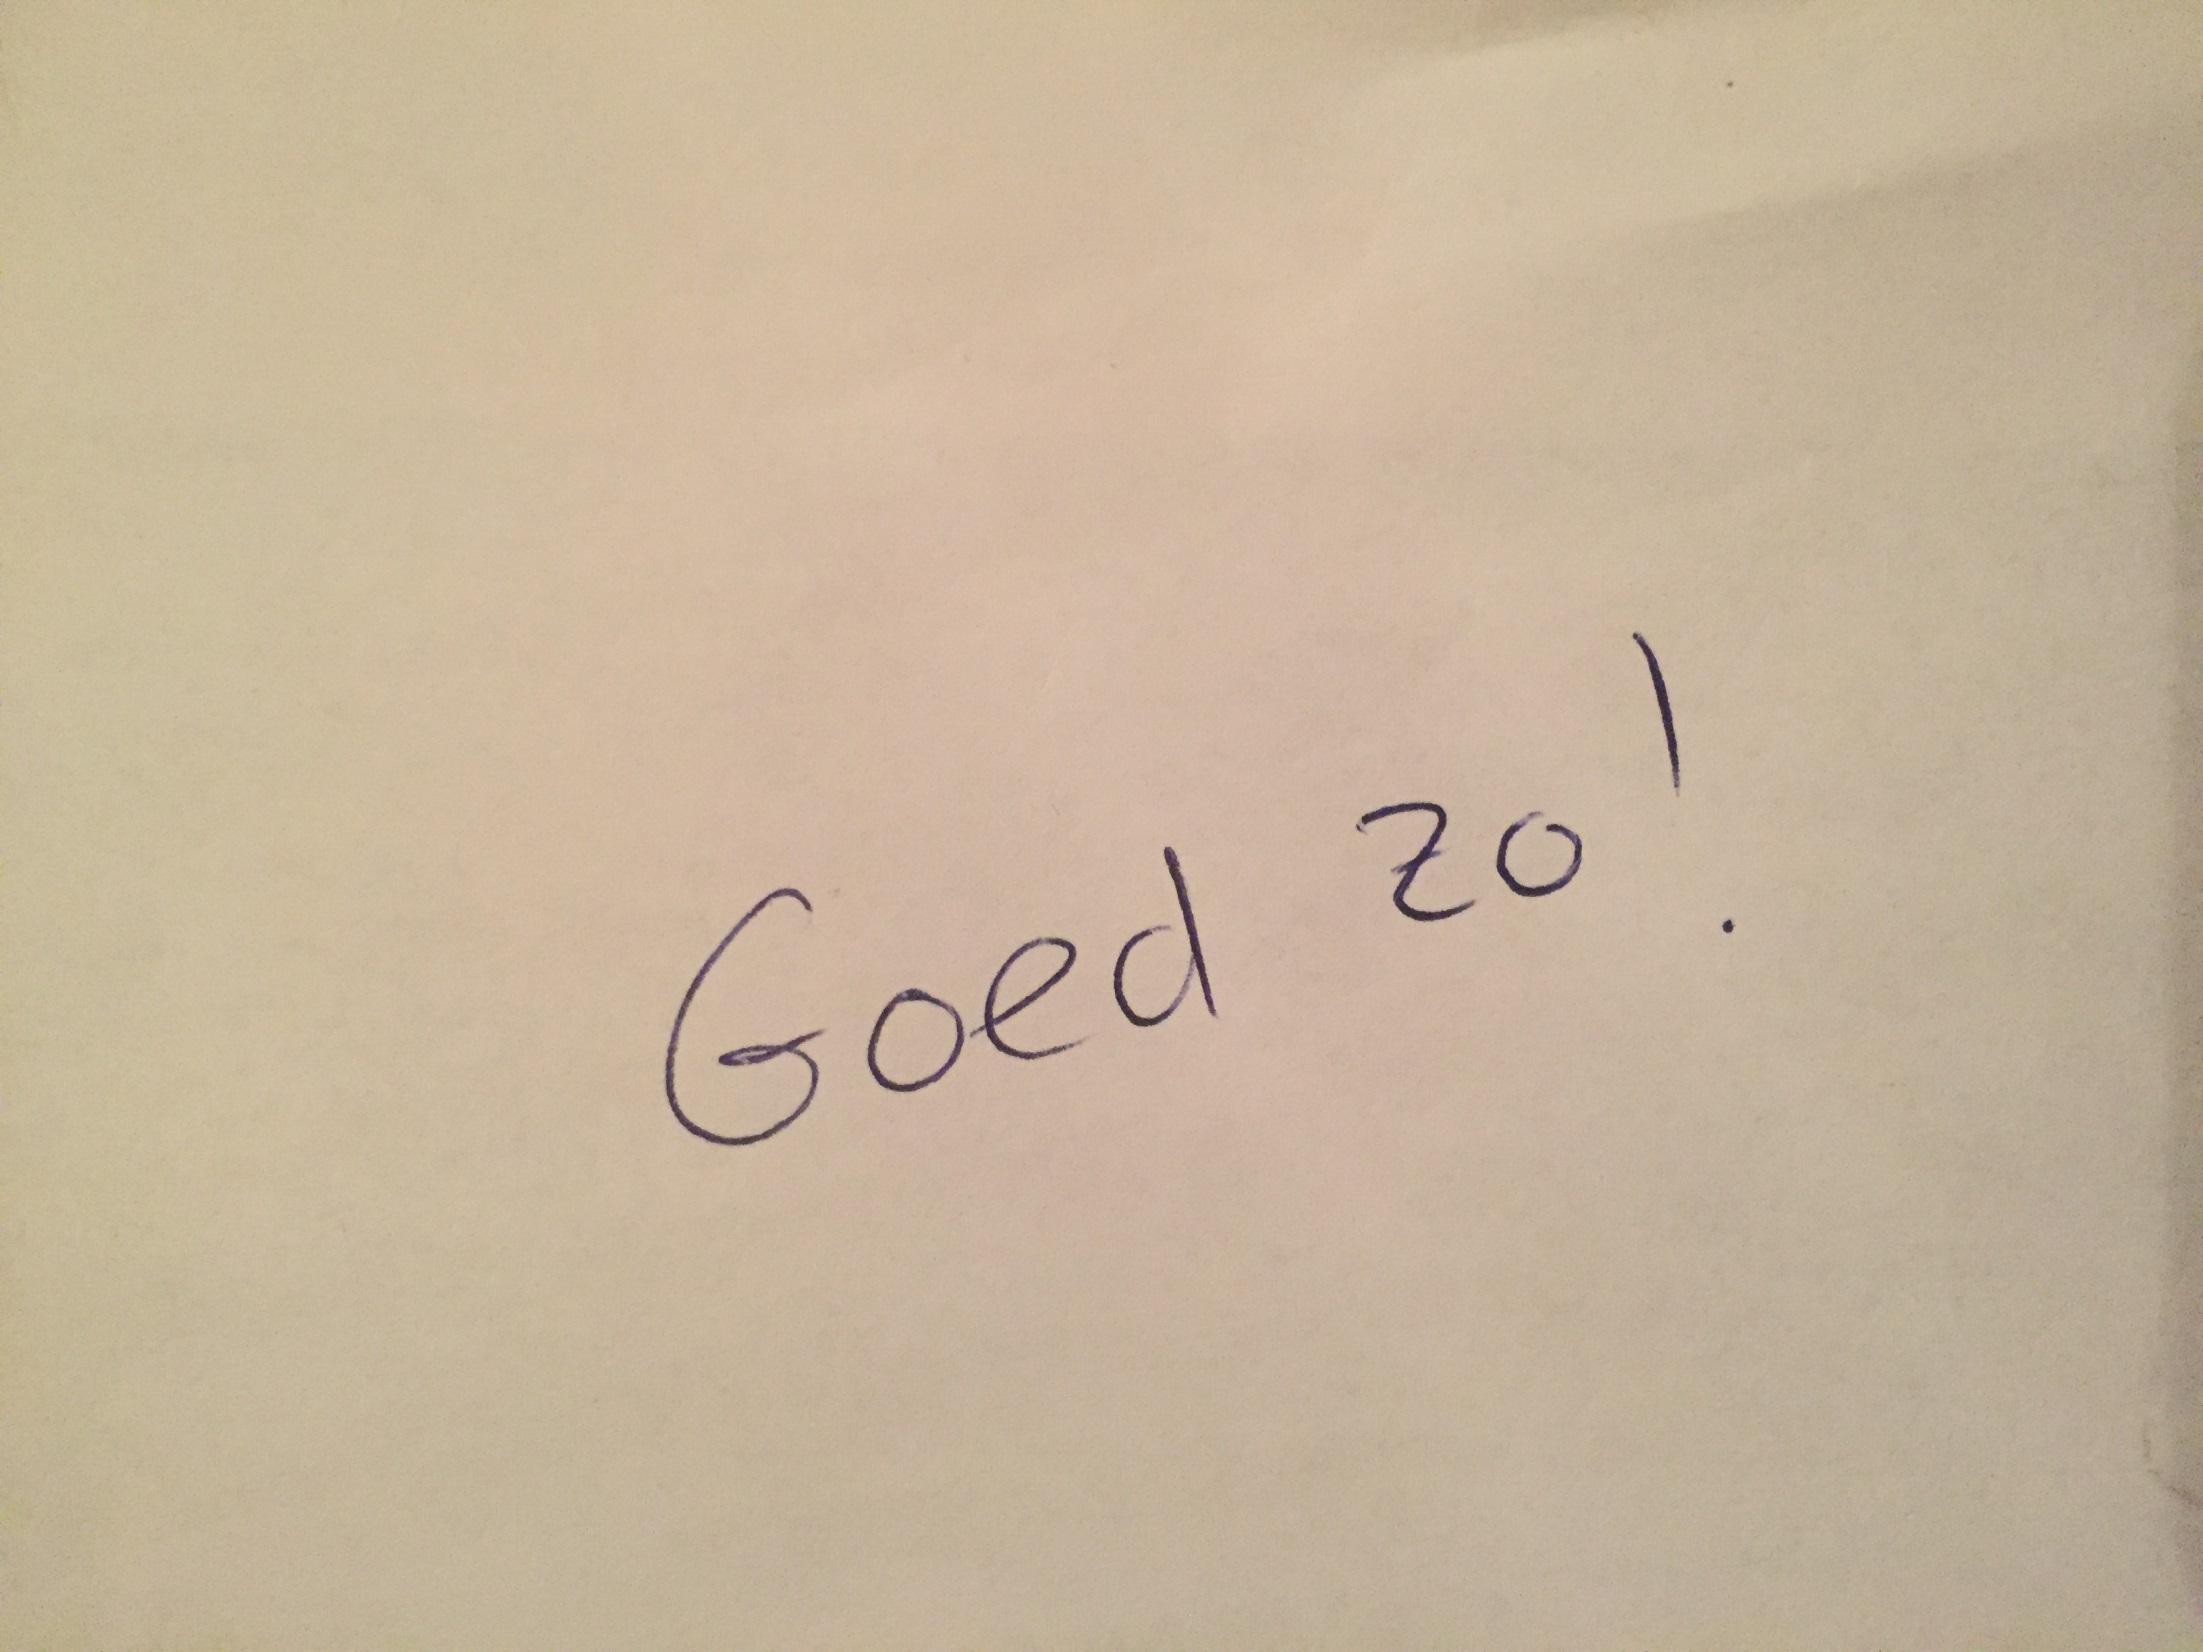 Goed zo!